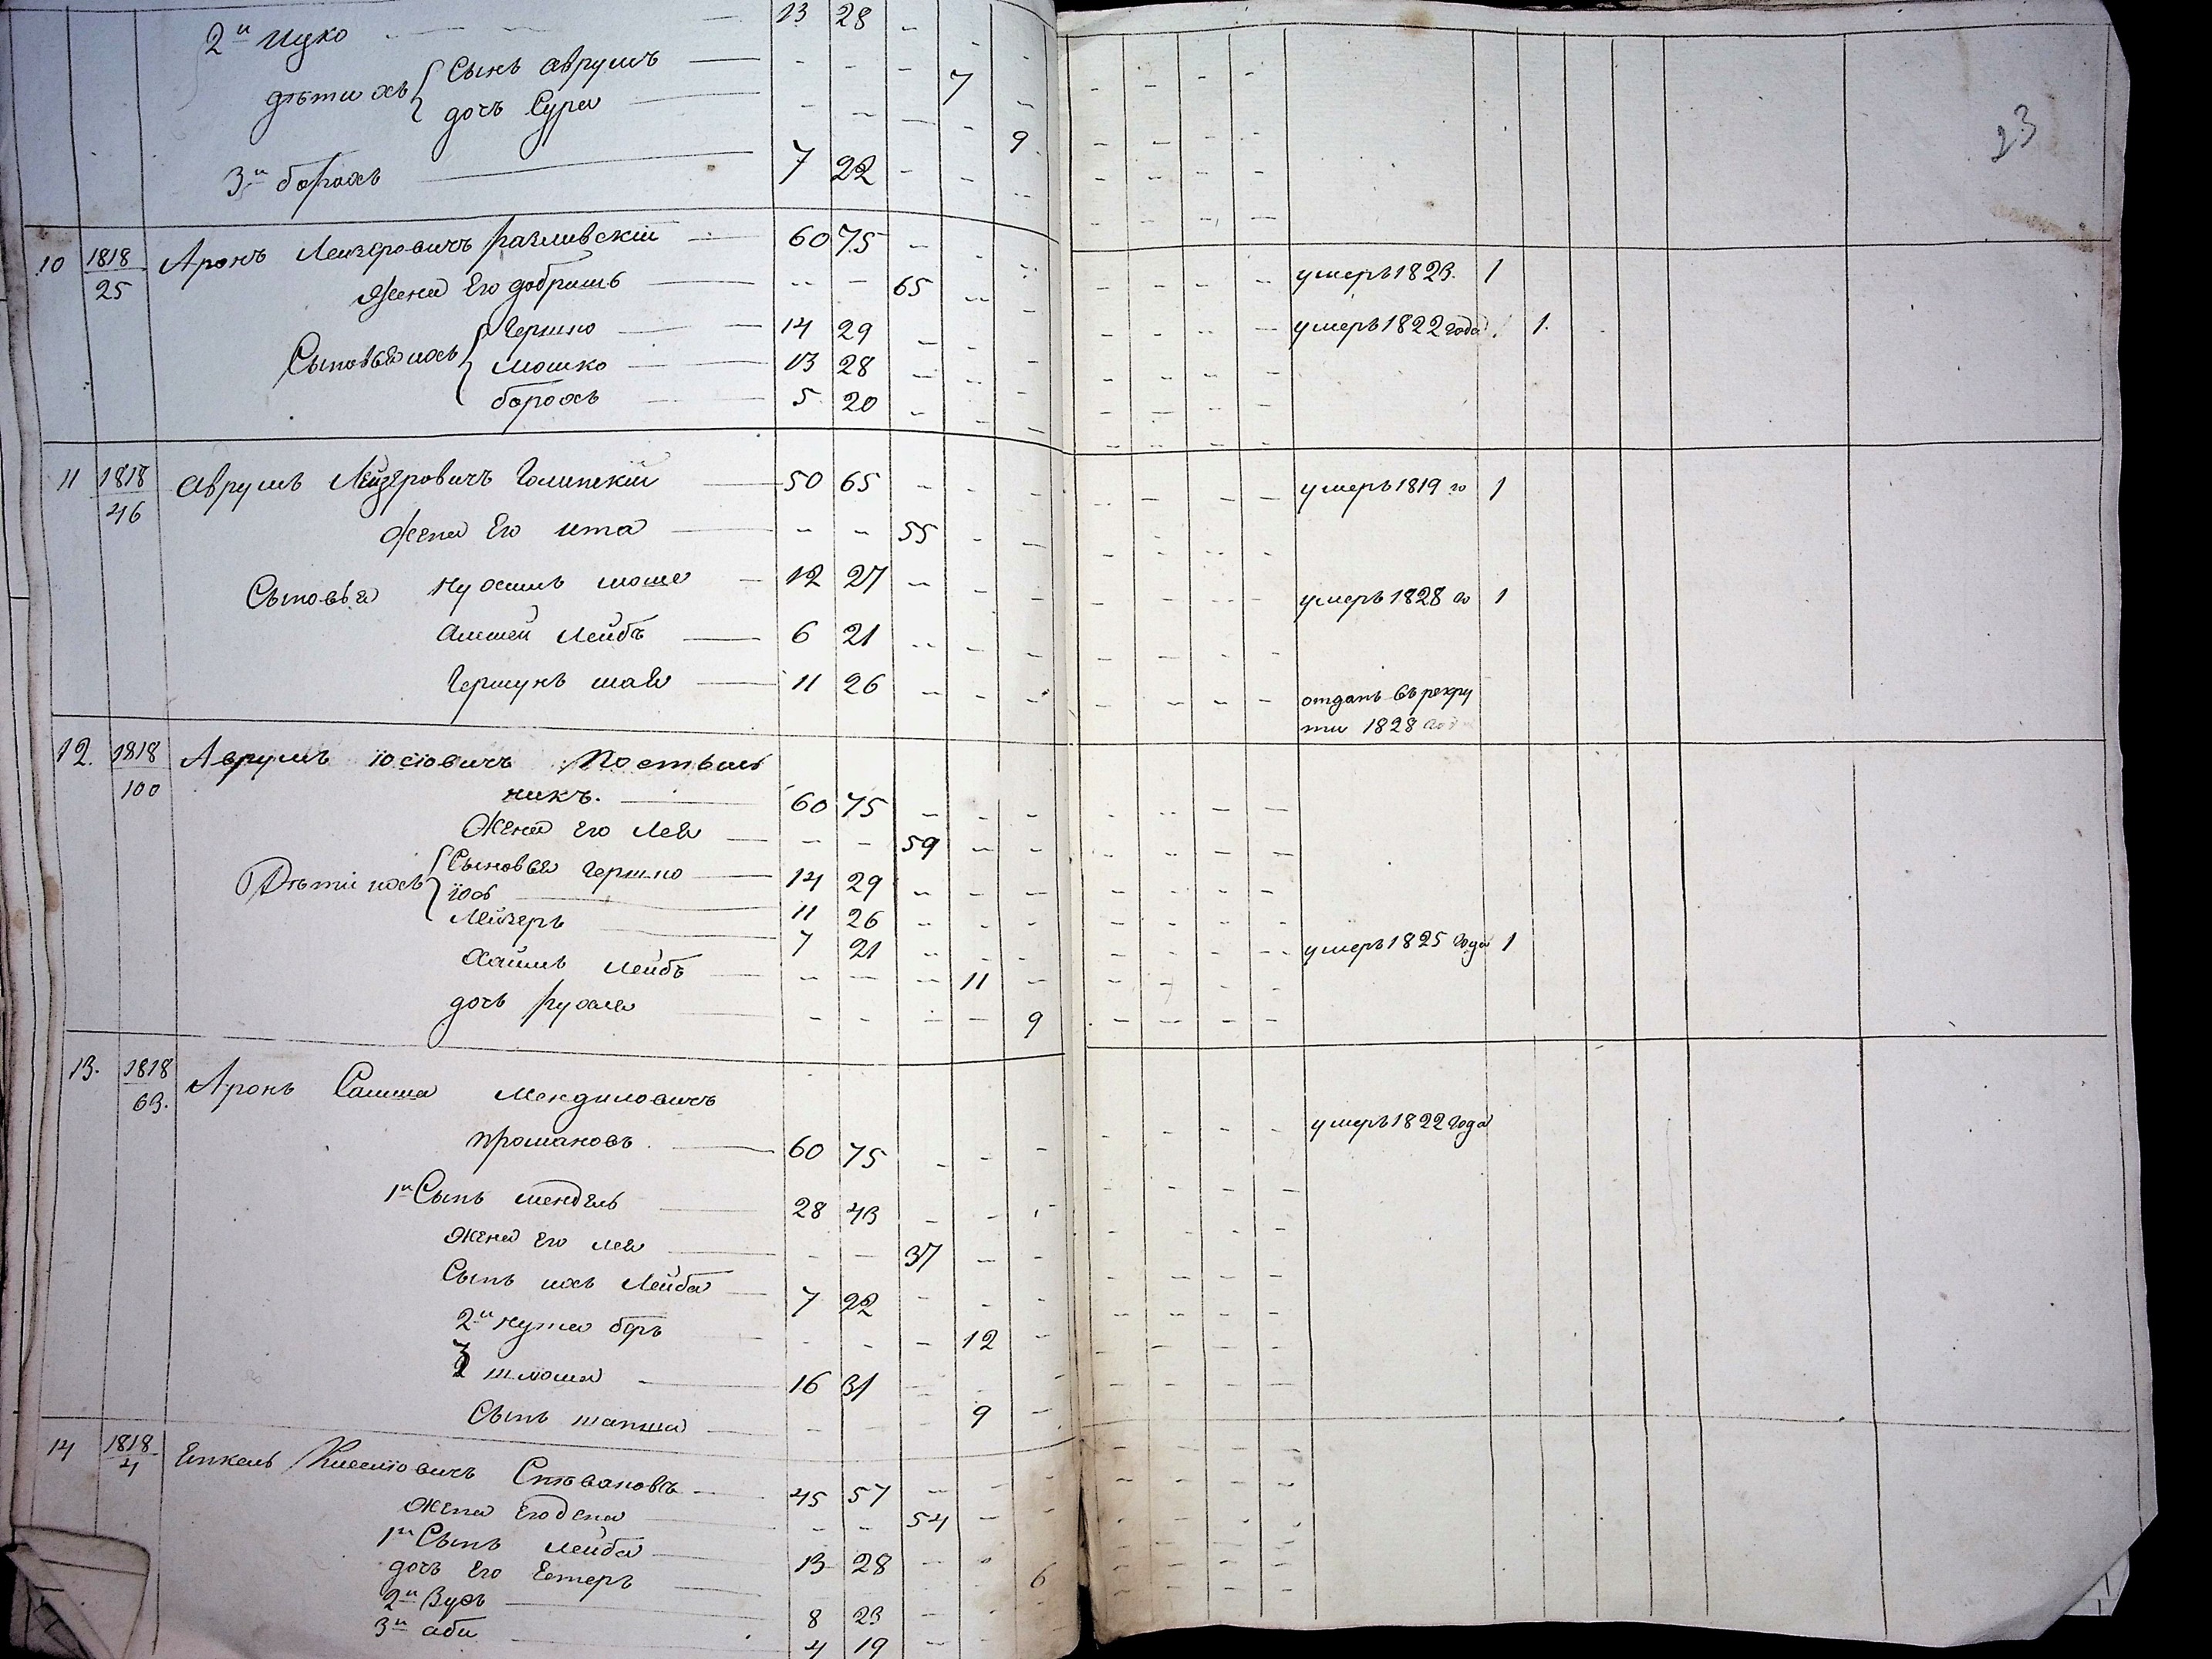 2й Ицко — 13 28 - - -
дѣти ихъ { Сынъ Аврумъ — - - - 7 -
дочь Сура — - - - - 9
3й борохъ — 7 22 - - -
23
10 1818/25 Аронъ Лейзеровичъ — 60 75 - - - умеръ 1823. 1
Жена Его добришъ — - - 65 - - умеръ 1822 года 1.
Сыновья ихъ { Гершко — 14 29 - - -
мошко — 13 28 - - -
борохъ — 5 20 - - -
11 1818/46 Аврумъ Лейзеровичъ — 50 65 - - - умеръ 1819 го 1
Жена Его ита — - - 55 - -
Сыновья Нухимъ моше — 12 27 - - - умеръ 1828 го 1
Лейбъ — 6 21 - - -
Гершунъ шая — 11 26 - - - отданъ въ рекру
ти 1828 года
12. 1818/100 Аврумъ Іосіовичъ Постыль
никъ. — 60 75 - - -
Жена Его лея — - - 59 - -
Дѣти ихъ { Сыновья Гершко — 14 29 - - -
Іось — 11 26 - - -
Лейзеръ — 7 21 - - - умеръ 1825 года 1
Хаимъ Лейбъ — - - - 11 -
дочь рухля — - - - - 9
13. 1818/63. Аронъ Мендиловичъ
— 60 75 - - - умеръ 1822 года
1й Сынъ мендель — 28 43 - - -
Жена Его лея — - - 37 - -
Сынъ ихъ Лейба — 7 22 - - -
2й нута беръ — - - - 12 -
3 шліома — 16 31 - - -
Сынъ шапша — - - - 9 -
14 1818/4 Еикель — 45 57 - - -
Жена Его Дена — - - 54 - -
1й Сынъ лейба — 13 28 - - -
дочь Его Естеръ — - - - - 6
2й — 8 23 - - -
3й аби — 4 19 -